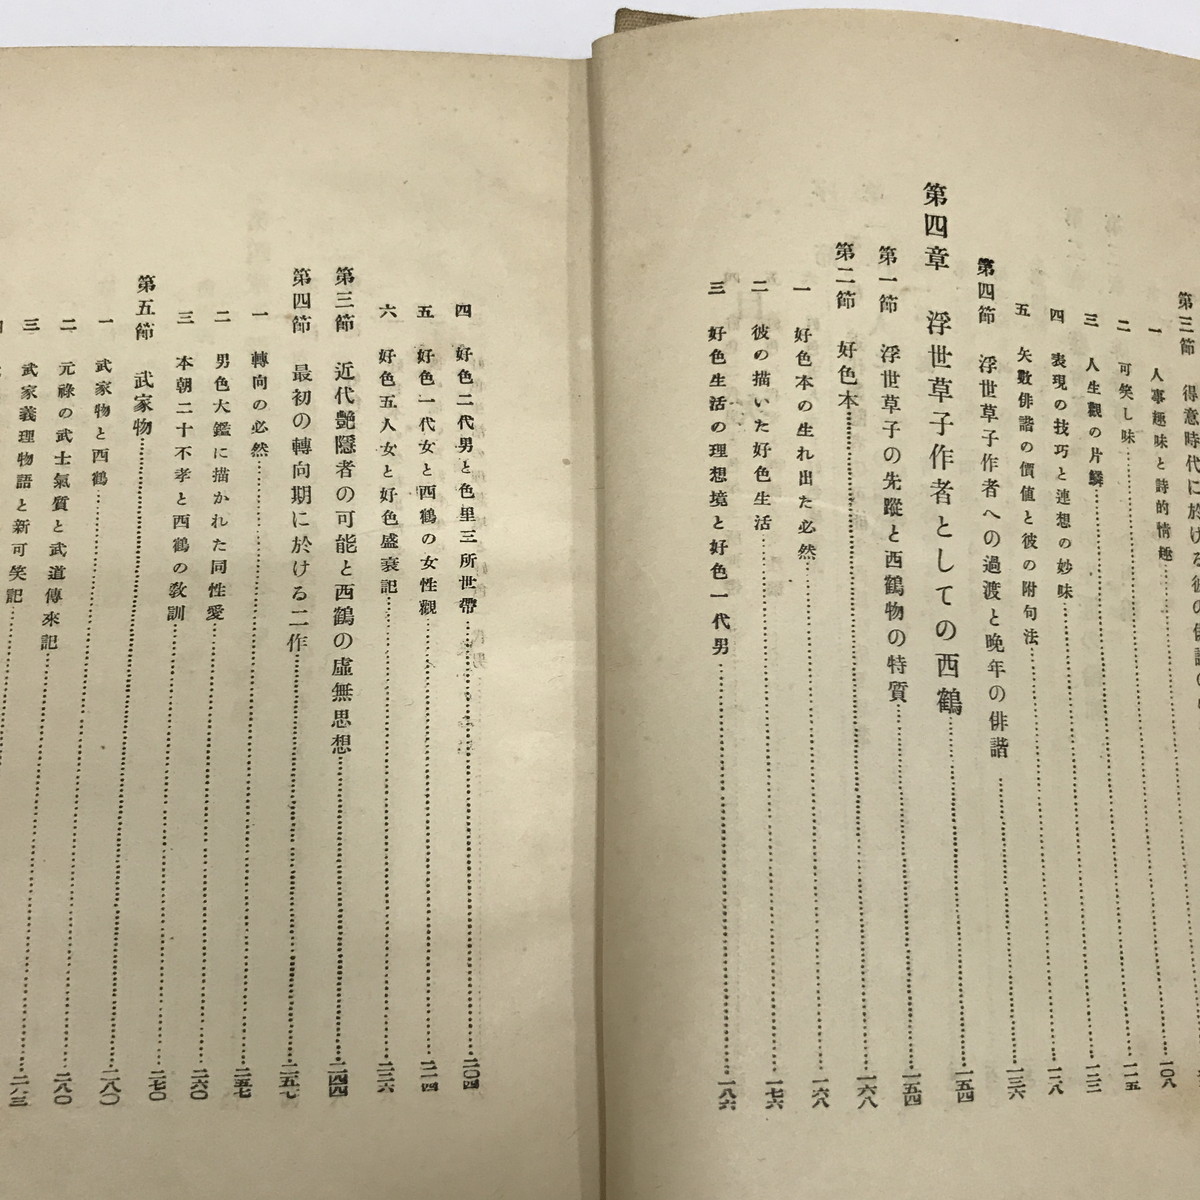 第三節 得意時代に於ける彼の俳諧の
一 人事趣味と詩的情趣 一〇八
二 可笑し味 一一五
三 人生觀の片鱗 一二三
四 表現の技巧と連想の妙味 一二八
五 矢數俳諧の價値と彼の附句法 一三六
第四節 浮世草子作者への過渡と晩年の俳諧
第四章 浮世草子作者としての西鶴 一五四
第一節 浮世草子の先蹤と西鶴物の特質 一五四
第二節 好色本 一六八
一 好色本の生れ出た必然 一六八
二 彼の描いた好色生活 一七六
三 好色生活の理想境と好色一代男 一八六
四 好色二代男と色里三所世帶 二〇四
五 好色一代女と西鶴の女性觀 二一四
六 好色五人女と好色盛衰記 二三六
第三節 近代艶隱者の可能と西鶴の虛無思想 二四四
第四節 最初の轉向期に於ける二作 二五七
一 轉向の必然 二五七
二 男色大鑑に描かれた同性愛 二六〇
三 本朝二十不孝と西鶴の敎訓 二七〇
第五節 武家物
一 武家物と西鶴 二八〇
二 元祿の武士氣質と武道傳來記 二八〇
三 武家義理物語と新可笑記